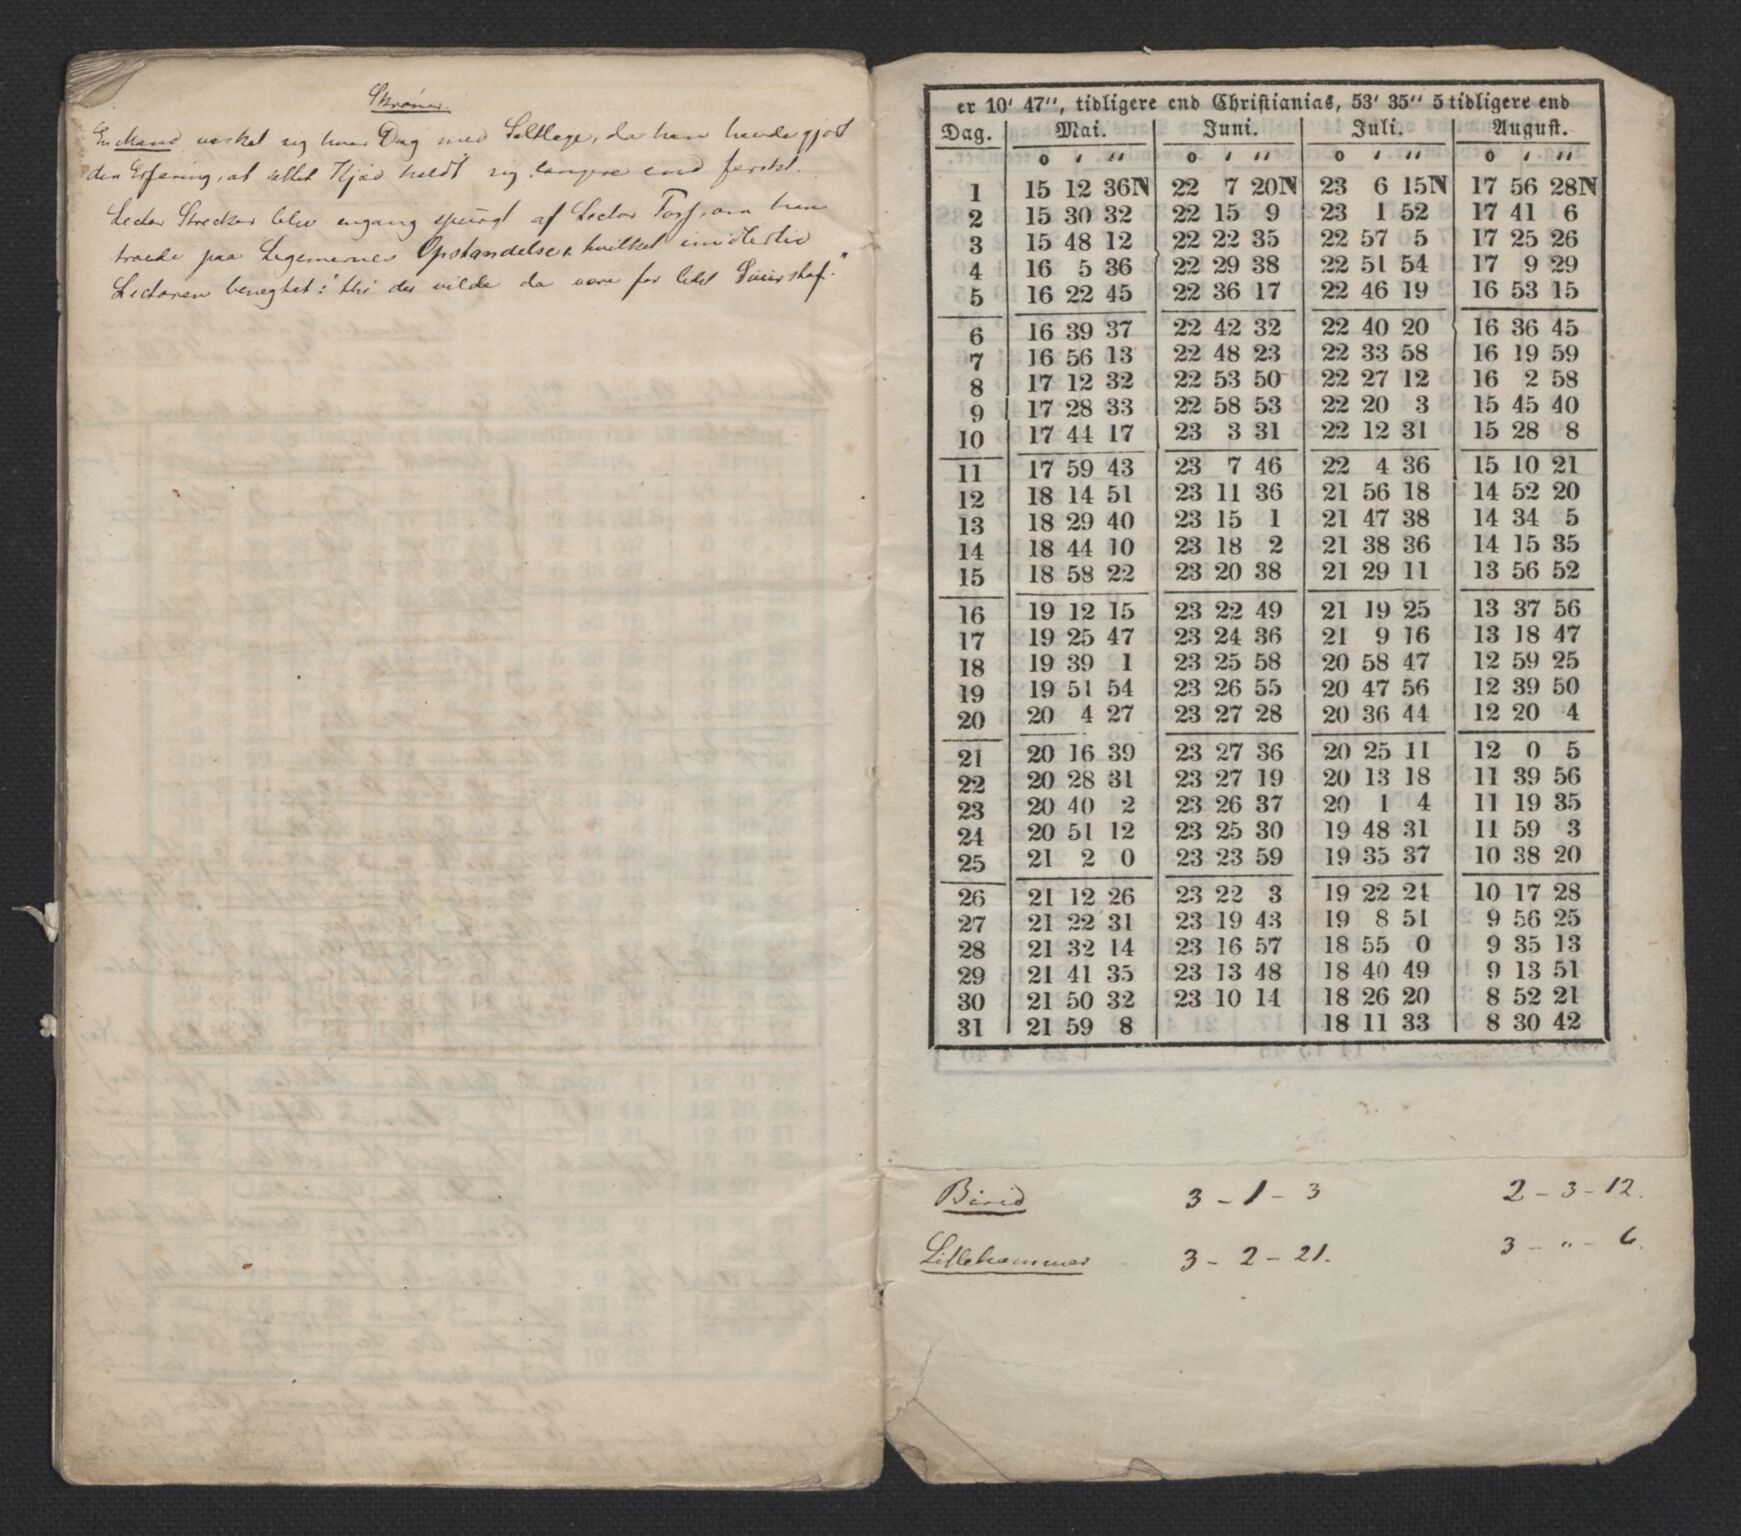 Skrøner.
En Mand vasket sig hver Dag med Saltlage, da han havde gjort
den Erfaring, at saltet Kjød holdt sig længere end ferskt.
Lector Strecker blev engang spurgt af Lector Torf, om han
troede paa Legemernes Opstandelse, hvilket imidlertid
Lectoren benegtet: "thi der vilde da være for lidet
er 10' 47'', tidligere end Christianias, 53' 35'' 5 tidligere end
Dag. Mai. Juni. Juli. August.
o ' '' o ' '' o ' '' o ' ''
1 15 12 36N 22 7 20N 23 6 15N 17 56 28N
2 15 30 32 22 15 9 23 1 52 17 41 6
3 15 48 12 22 22 35 22 57 5 17 25 26
4 16 5 36 22 29 38 22 51 54 17 9 29
5 16 22 45 22 36 17 22 46 19 16 53 15
6 16 39 37 22 42 32 22 40 20 16 36 45
7 16 56 13 22 48 23 22 33 58 16 19 59
8 17 12 32 22 53 50 22 27 12 16 2 58
9 17 28 33 22 58 53 22 20 3 15 45 40
10 17 44 17 23 3 31 22 12 31 15 28 8
11 17 59 43 23 7 46 22 4 36 15 10 21
12 18 14 51 23 11 36 21 56 18 14 52 20
13 18 29 40 23 15 1 21 47 38 14 34 5
14 18 44 10 23 18 2 21 38 36 14 15 35
15 18 58 22 23 20 38 21 29 11 13 56 52
16 19 12 15 23 22 49 21 19 25 13 37 56
17 19 25 47 23 24 36 21 9 16 13 18 47
18 19 39 1 23 25 58 20 58 47 12 59 25
19 19 51 54 23 26 55 20 47 56 12 39 50
20 20 4 27 23 27 28 20 36 44 12 20 4
21 20 16 39 23 27 36 20 25 11 12 0 5
22 20 28 31 23 27 19 20 13 18 11 39 56
23 20 40 2 23 26 37 20 1 4 11 19 35
24 20 51 12 23 25 30 19 48 31 11 59 3
25 21 2 0 23 23 59 19 35 37 10 38 20
26 21 12 26 23 22 3 19 22 24 10 17 28
27 21 22 31 23 19 43 19 8 51 9 56 25
28 21 32 14 23 16 57 18 55 0 9 35 13
29 21 41 35 23 13 48 18 40 49 9 13 51
30 21 50 32 23 10 14 18 26 20 8 52 21
31 21 59 8 18 11 33 8 30 42
Birid 3 - 1 - 3 2 - 3 - 12.
Lillehammer 3 - 2 - 21. 3 - " - 6.